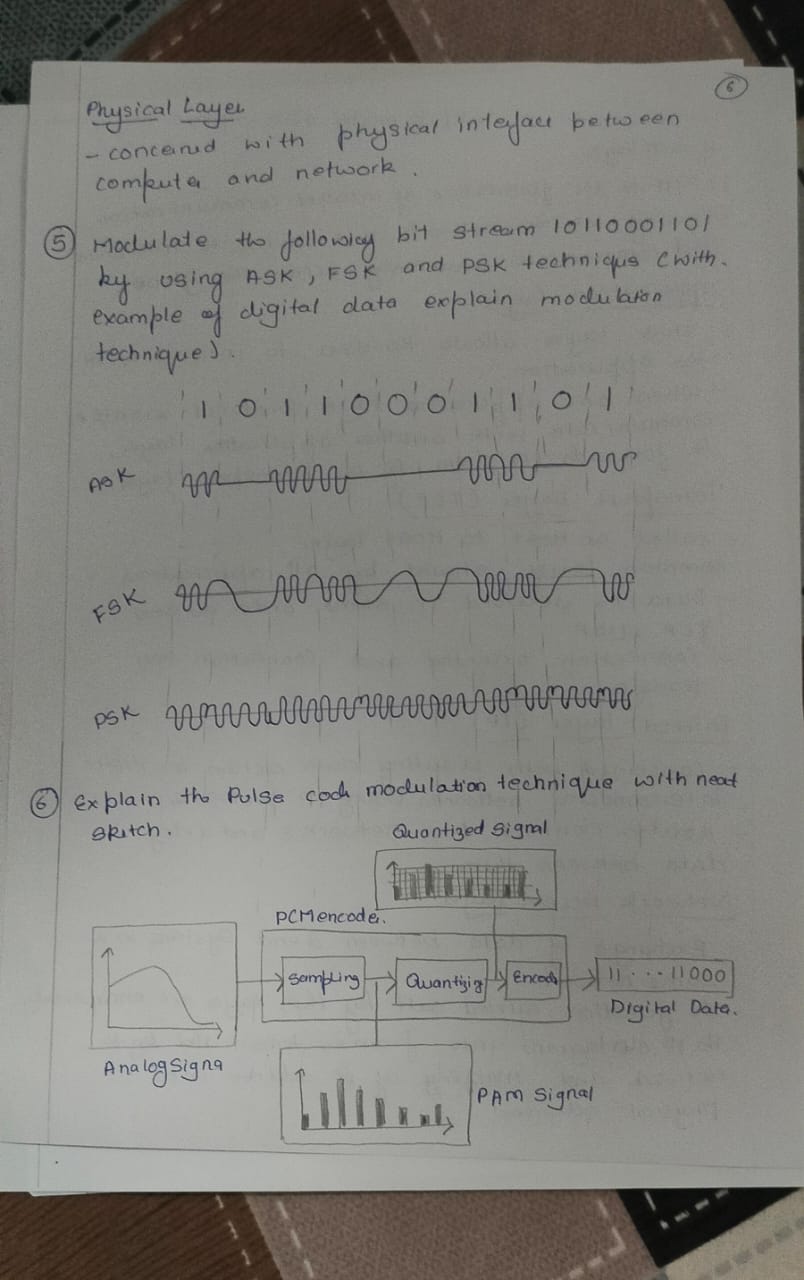 6
Physical Layer
- concerned with physical interface between
computer and network.
5 Modulate the following bit stream 10110001101
by using ASK, FSK and PSK techniqus (with
example of digital data explain modulation
technique).
1 0 1 1 0 0 0 1 1 0 1
ASK
FSK
PSK
6 Explain the Pulse code modulation technique with neat
sketch.
Quantized Signal
PCM encoder.
Sampling
Quantizig
Encode
11 · · · 11000
Digital Data.
Analog Signa
PAM Signal